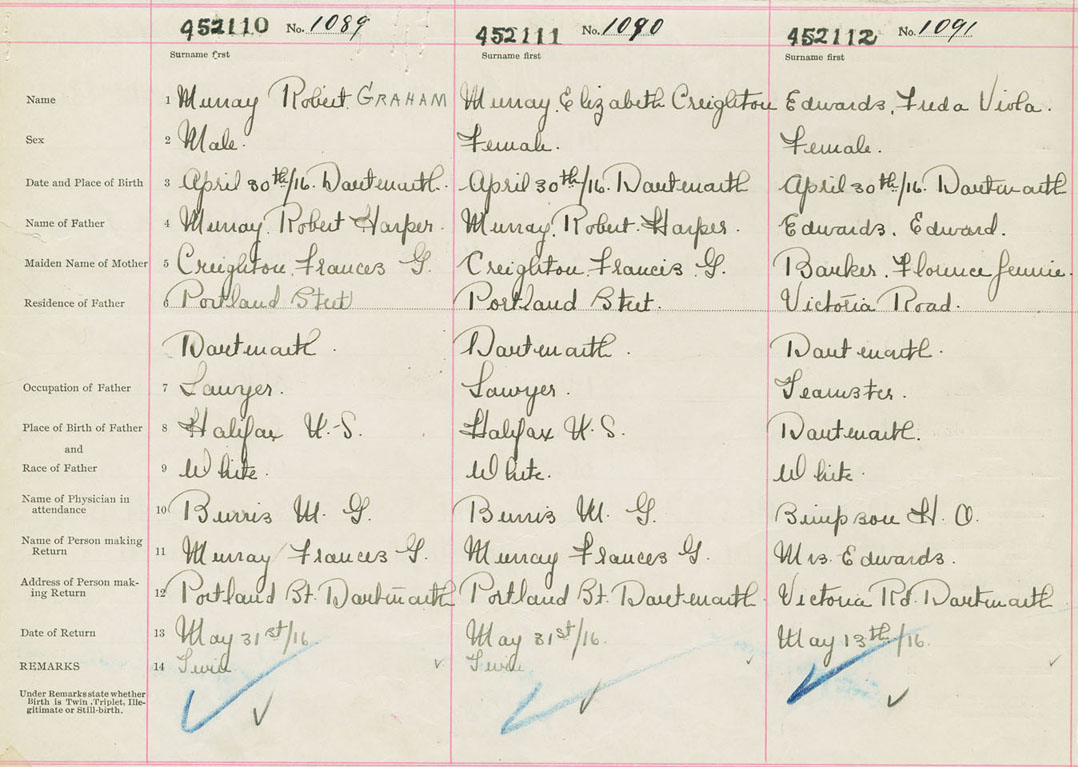 452110 No. 1089 452111 No. 1090 452112 No. 1091
Surname first Surname first Surname first
Name 1 Murray Robert GRAHAM Murray, Elizabeth Creighton Edwards, Freda Viola.
Sex 2 Male. Female. Female.
Date and Place of Birth 3 April 30th/16. Dartmouth. April 30th/16. Dartmouth April 30th/16. Dartmouth
Name of Father 4 Murray, Robert Harper. Murray, Robert Harper. Edwards, Edward.
Maiden Name of Mother 5 Creighton, Frances G. Creighton, Francis G. Barker, Florence Jennie.
Residence of Father 6 Portland Street Portland Street. Victoria Road.
Dartmouth. Dartmouth. Dartmouth.
Occupation of Father 7 Lawyer. Lawyer. Teamster.
Place of Birth of Father 8 Halifax N.S. Halifax N.S. Dartmouth.
and
Race of Father 9 White. White. White.
Name of Physician in
attendance 10 Burris M. G. Burris M. G. Simpson H. O.
Name of Person making
Return 11 Murray Frances G. Murray Frances G. Mrs. Edwards.
Address of Person mak-
ing Return 12 Portland St. Dartmouth Portland St. Dartmouth. Victoria Rd. Dartmouth
Date of Return 13 May 31st/16 May 31st/16. May 13th/16.
REMARKS 14 Twin Twin
Under Remarks state whether
Birth is Twin, Triplet, Ille-
gitimate or Still-birth.